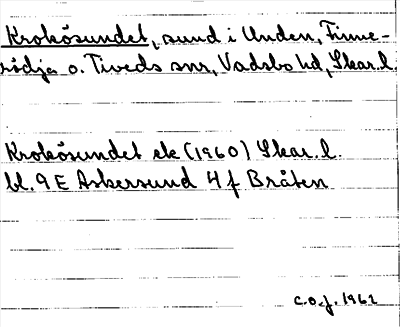 Krokösundet, sund i Unden, Finne-
rödja o. Tiveds snr, Vadsbo hd, Skar.l.
Krokösundet ek (1960) Skar.l.
bl. 9E Askersund 4f Bråten
C.O.J. 1962